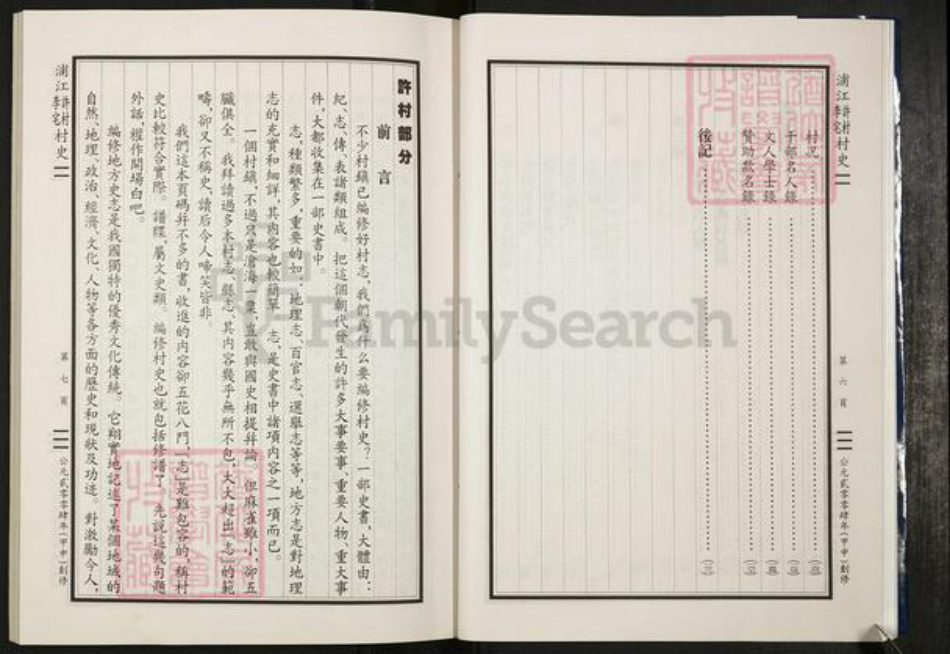 浦江許村李宅村史
第六頁
公元貳零零肆年(甲申)創修
村况
干部名人錄
文人學士錄
贊助款名錄
後記
許村部分
前言
不少村鎮已編修好村志,我們爲什么要編修村史?一部史書,大體由:
紀、志、傳、表諸類組成。把這個朝代發生的許多大事要事、重要人物、重大事
件,大都收集在一部史書中。
志,種類繁多,重要的如:地理志、百官志、選舉志等等,地方志是對地理
志的充實和細詳,其内容也較簡單。志,是史書中諸項内容之一項而已。
一個村鎮,不過只是滄海一粟,豈敢與國史相提并論。但麻雀雖小,卻五
臟俱全。我拜讀過多本村志、縣志,其内容幾乎無所不包,大大超出“志”的範
疇,卻又不稱史,讀后令人啼笑皆非。
我們這本頁碼并不多的書,收進的内容卻五花八門,“志”是難包容的,稱村
史比較符合實際。譜牒,屬文史類。編修村史也就包括修譜了。先說這幾句題
外話,權作開場白吧。
編修地方史志是我國獨特的優秀文化傳統。它翔實地記述了某個地域的
自然、地理、政治、經濟、文化、人物等各方面的歷史和現狀及功迹。對激勵今人,
浦江許村李宅村史
第七頁
公元貳零零肆年(甲申)創修
FamilySearch